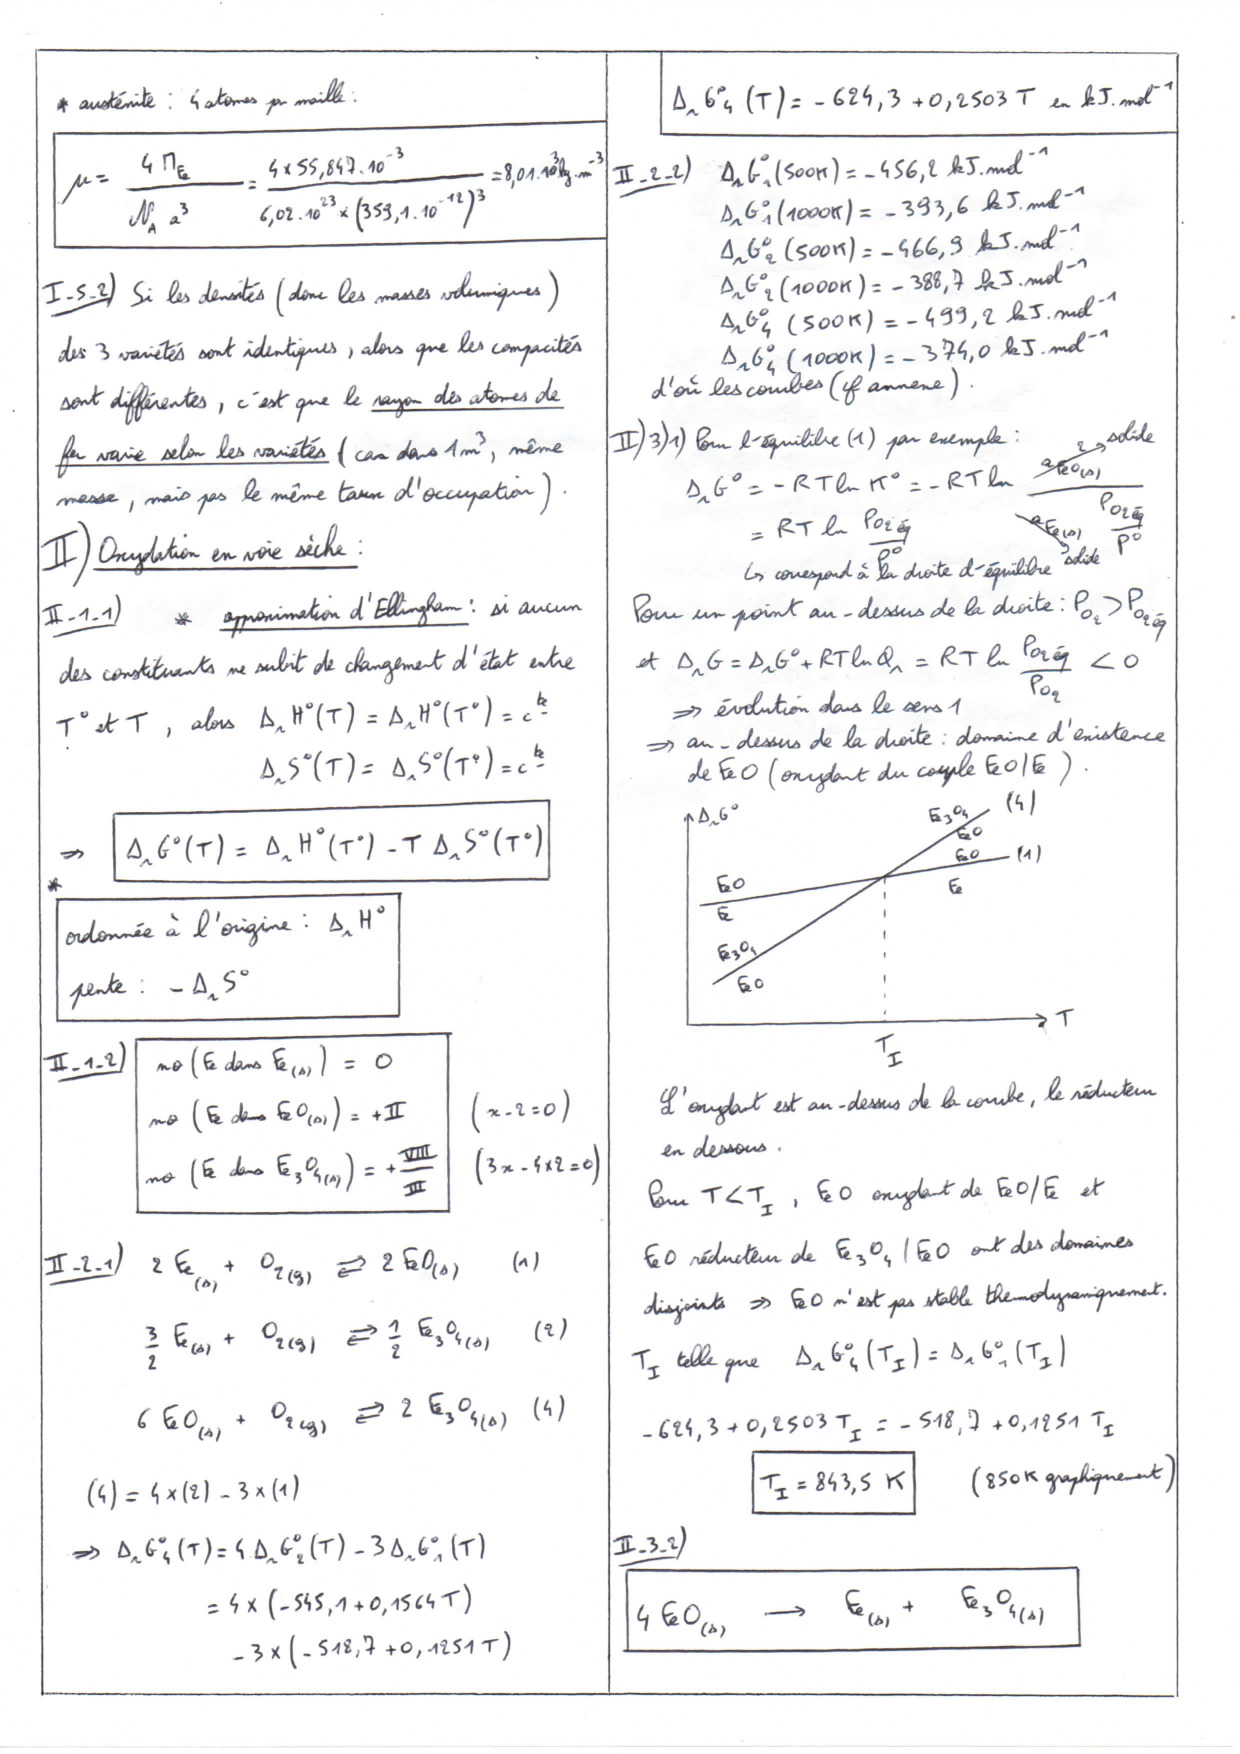 * austénite : 4 atomes par maille :
μ = 4 M_Fe / (N_A a³) = 4×55,847.10⁻³ / (6,02.10²³×(359,1.10⁻¹²)³) = 8,01.10³ kg.m⁻³
I-5-2) Si les densités (donc les masses volumiques)
des 3 variétés sont identiques, alors que les compacités
sont différentes, c'est que le rayon des atomes de
fer varie selon les variétés (car dans 1m³, même
masse, mais pas le même taux d'occupation).
II) Oxydation en voie sèche :
II-1-1) * approximation d'Ellingham : si aucun
des constituants ne subit de changement d'état entre
T° et T, alors Δ_rH°(T) = Δ_rH°(T°) = cte
Δ_rS°(T) = Δ_rS°(T°) = cte
⇒ Δ_rG°(T) = Δ_rH°(T°) - T Δ_rS°(T°)
*
ordonnée à l'origine : Δ_rH°
pente : - Δ_rS°
II-1-2) no (Fe dans Fe(s)) = 0
no (Fe dans FeO(s)) = +II (x-2=0)
no (Fe dans Fe₃O₄(s)) = + VIII/III (3x-4×2=0)
II-2-1) 2 Fe(s) + O₂(g) ⇄ 2 FeO(s) (1)
3/2 Fe(s) + O₂(g) ⇄ 1/2 Fe₃O₄(s) (2)
6 FeO(s) + O₂(g) ⇄ 2 Fe₃O₄(s) (4)
(4) = 4×(2) - 3×(1)
⇒ Δ_rG°₄(T) = 4 Δ_rG°₂(T) - 3 Δ_rG°₁(T)
= 4 × (-545,1 + 0,1564 T)
- 3 × (-518,7 + 0,1251 T)
Δ_rG°₄ (T) = - 624,3 + 0,2503 T en kJ.mol⁻¹
II-2-2) Δ_rG°₁(500K) = -456,2 kJ.mol⁻¹
Δ_rG°₁(1000K) = - 393,6 kJ.mol⁻¹
Δ_rG°₂(500K) = -466,9 kJ.mol⁻¹
Δ_rG°₂(1000K) = - 388,7 kJ.mol⁻¹
Δ_rG°₄ (500K) = - 499,2 kJ.mol⁻¹
Δ_rG°₄ (1000K) = - 374,0 kJ.mol⁻¹
d'où les courbes (cf annexe).
II)3)1) Pour l'équilibre (1) par exemple :
Δ_rG° = - RT ln K° = - RT ln a²FeO(s) → solide / (a²Fe(s) → solide P_O₂éq/P°)
= RT ln P_O₂éq/P°
↳ correspond à la droite d'équilibre
Pour un point au-dessus de la droite : P_O₂ > P_O₂éq
et Δ_rG = Δ_rG° + RT ln Q_r = RT ln P_O₂éq/P_O₂ < 0
⇒ évolution dans le sens 1
⇒ au-dessus de la droite : domaine d'existence
de FeO (oxydant du couple FeO/Fe).
Δ_rG°
Fe₃O₄ (4)
FeO
FeO (1)
Fe
FeO
Fe
Fe₃O₄
FeO
T
T_I
L'oxydant est au-dessus de la courbe, le réducteur
en dessous.
Pour T < T_I, FeO oxydant de FeO/Fe et
FeO réducteur de Fe₃O₄/FeO ont des domaines
disjoints ⇒ FeO n'est pas stable thermodynamiquement.
T_I telle que Δ_rG°₄(T_I) = Δ_rG°₁(T_I)
- 624,3 + 0,2503 T_I = - 518,7 + 0,1251 T_I
T_I = 843,5 K (850K graphiquement)
II-3-2)
4 FeO(s) → Fe(s) + Fe₃O₄(s)